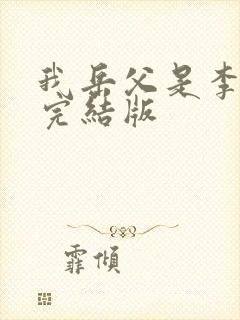 我岳父是李
完結版
霏傾